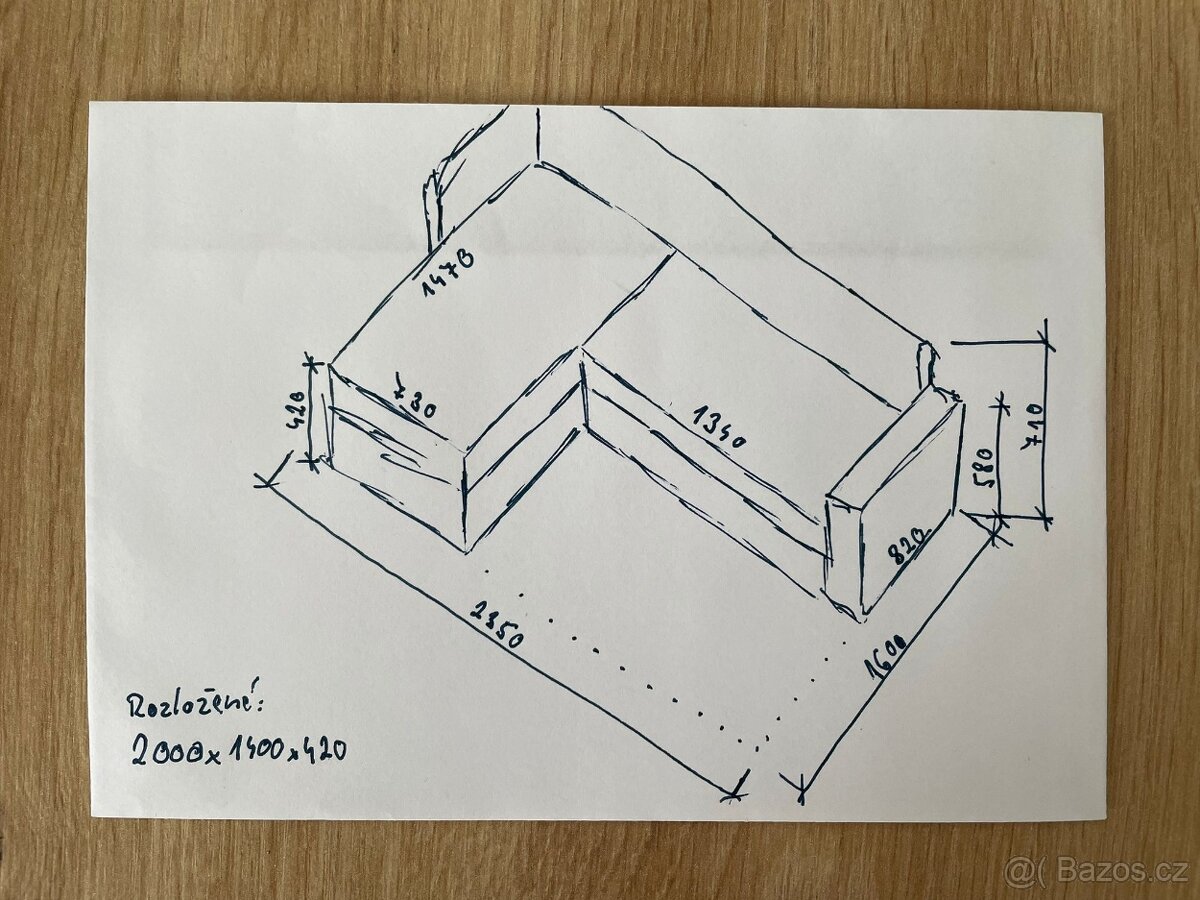 1470
730
420
1340
710
580
820
2350
1600
Rozložené:
2000x1400x420
@( Bazos.cz